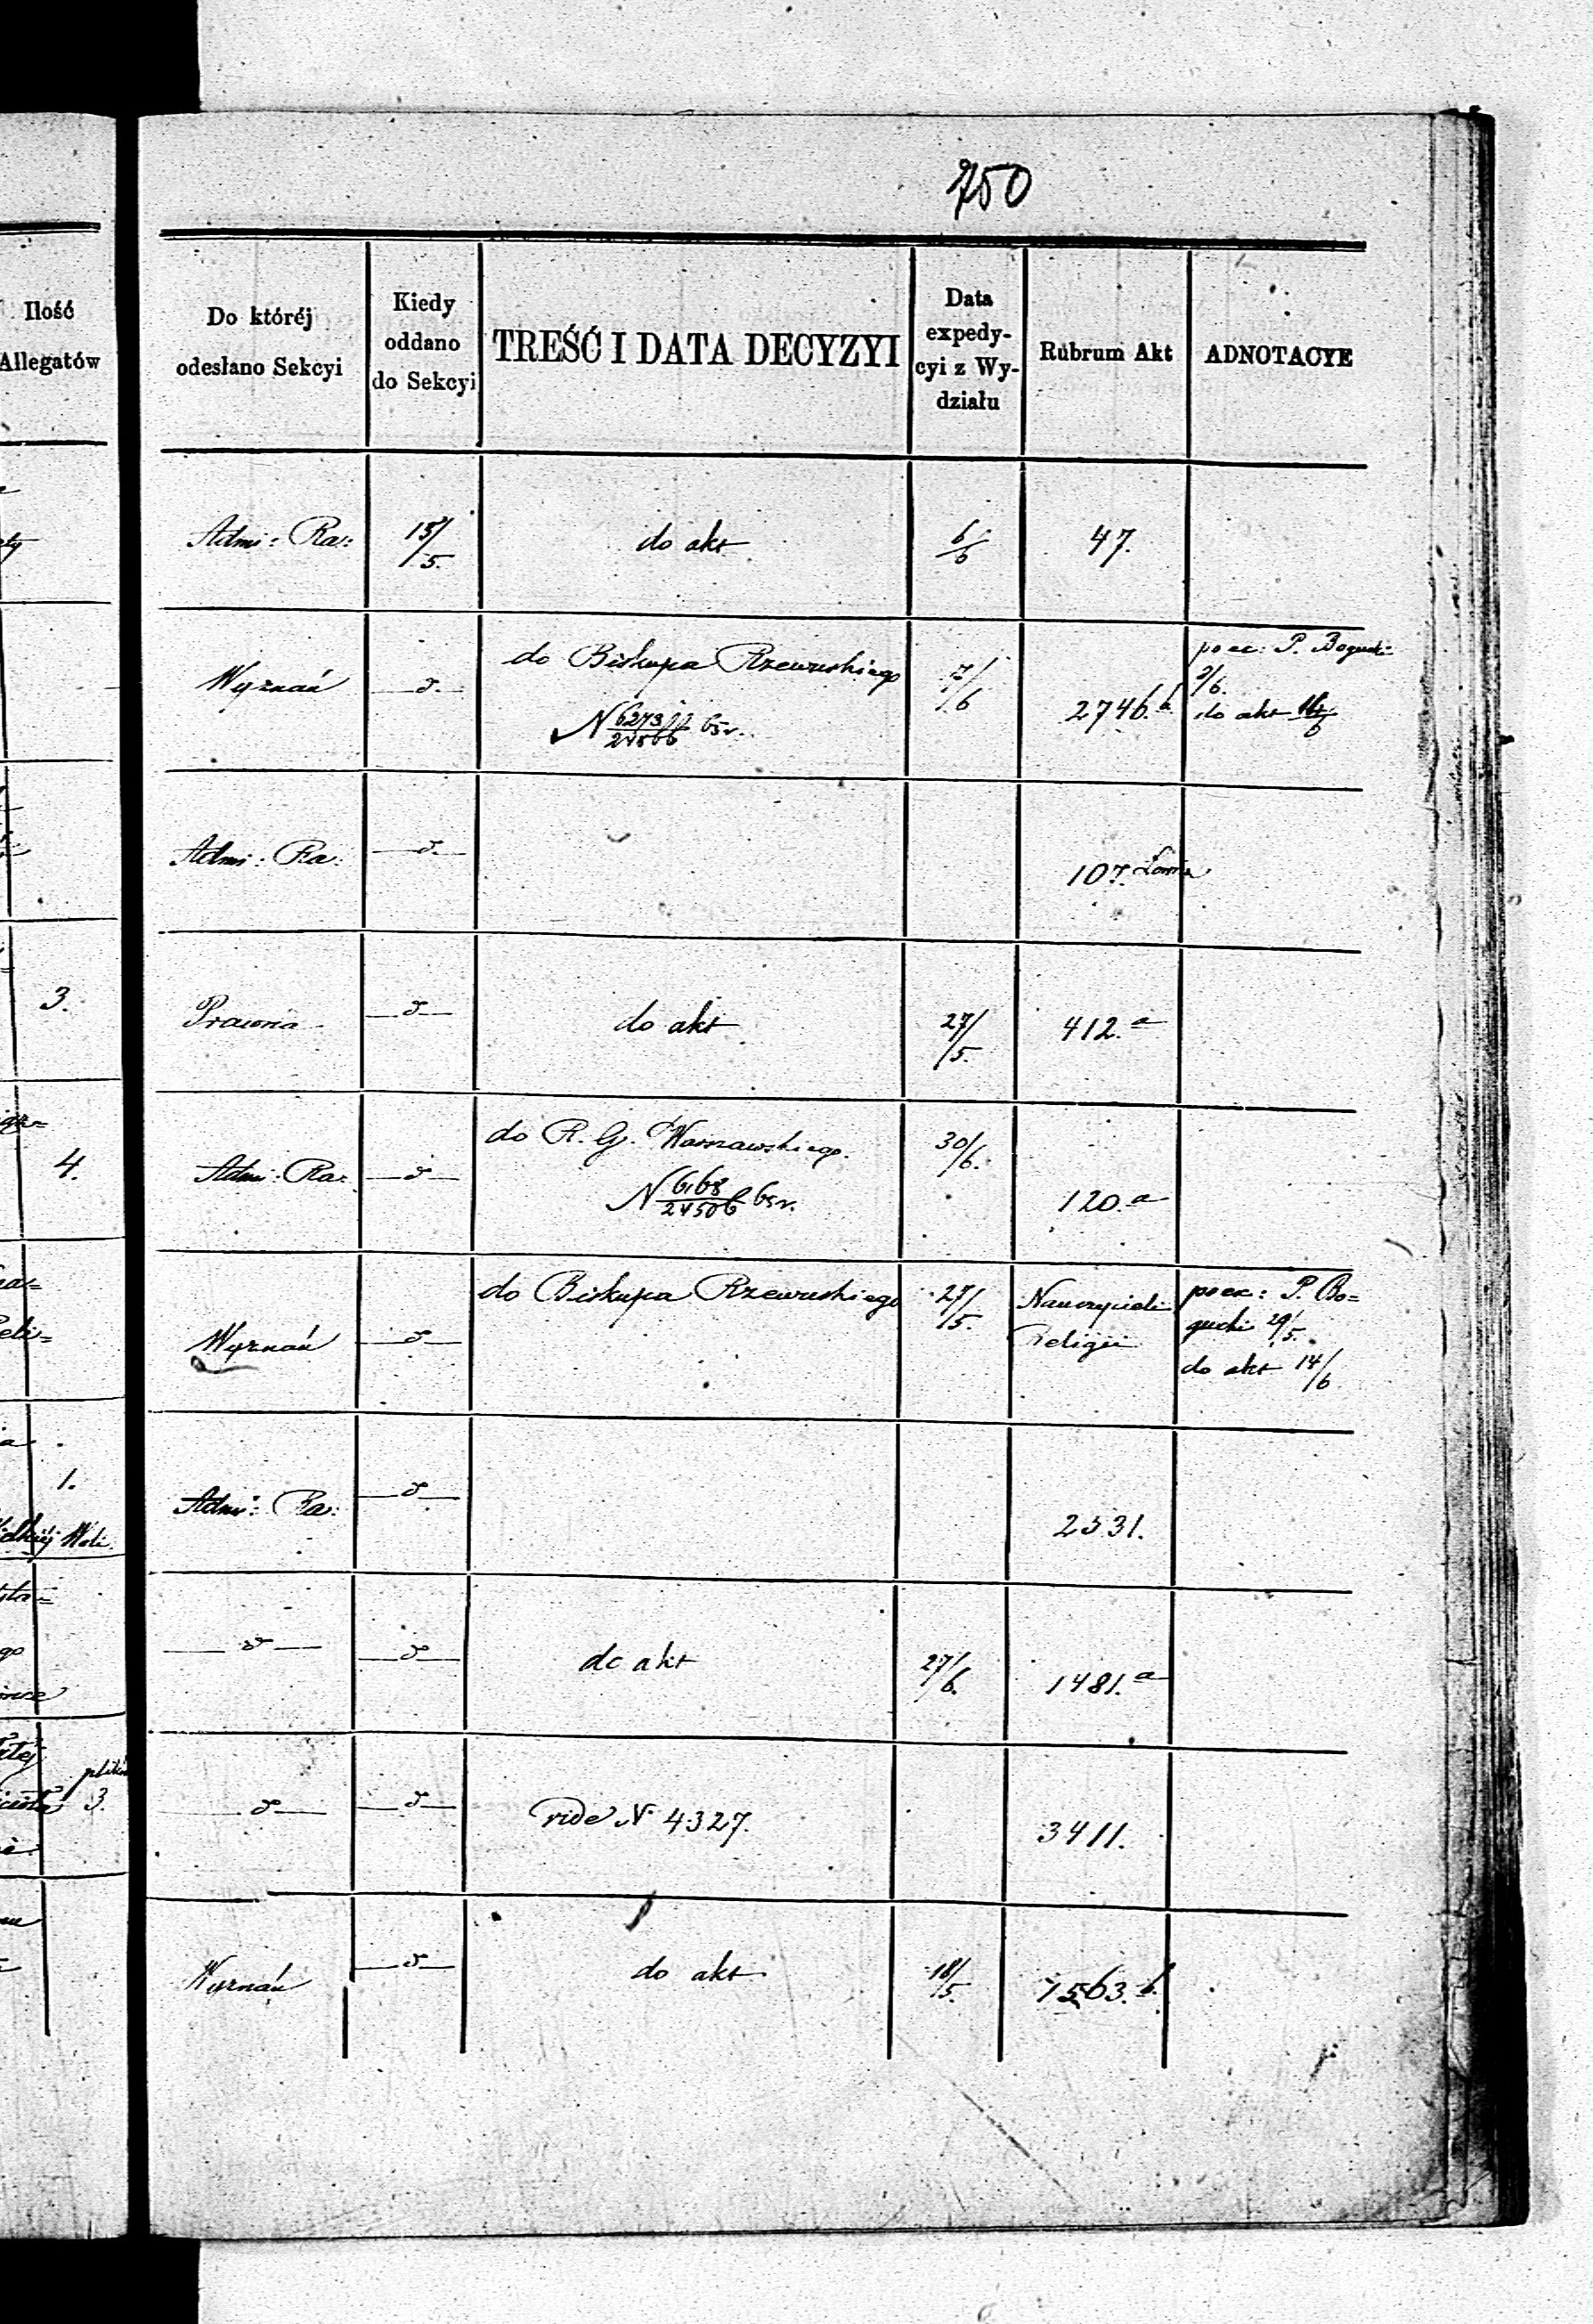 750
Ilość
Allegatów
Do któréj
odesłano Sekcyi
Kiedy
oddano
do Sekcyi
TREŚĆ I DATA DECYZYI
Data
expedy-
cyi z Wy-
działu
Rubrum Akt
ADNOTACYE
Admi: Ra: 15/5. do akt 6/6 47.
Wyznań d. do Biskupa Rzewuskiego 7/6 2746.b. P. Bogucki
N 65r. 9/6.
do akt
Admi: Ra: d. 107.
3. Prawna d do akt 27/5. 412.a
4. Admi: Ra: d do R. G. Warszawskiego. 30/6. 120.a
N 6168/24506 65r.
Wyznań d do Biskupa Rzewuskiego 27/5. Nauczycieli
Religii
P. Bo=
gucki 29/5.
do akt 14/6
1. Admi: Ra: d 2531.
Woli.
d d do akt 27/6. 1481.a
3. d d vide N 4327. 3411.
Wyznań d do akt 18/5. 1563.b.